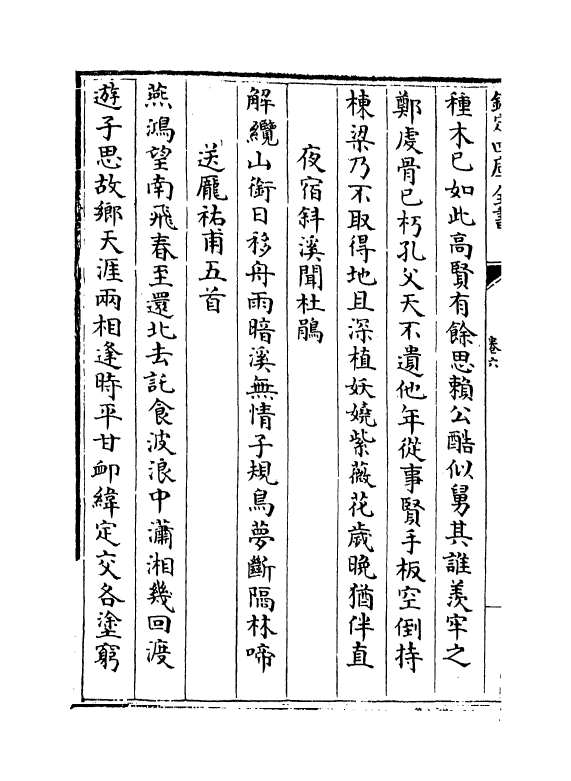 欽定四庫全書
卷六
種木已如此高賢有餘思賴公酷似舅其誰羨牢之
鄭虔骨已朽孔父天不遺他年從事賢手板空倒持
棟梁乃不取得地且深植妖嬈紫薇花歲晚猶伴直
夜宿斜溪聞杜鵑
解纜山銜日移舟雨暗溪無情子規鳥夢斷隔林啼
送龎祐甫五首
燕鴻望南飛春至還北去託食波浪中瀟湘幾回渡
遊子思故鄉天涯兩相逢時平甘卹緯定交各塗窮